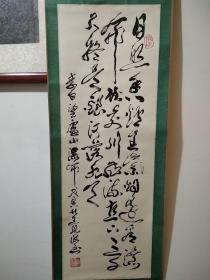 日照香爐生紫烟遥看瀑
布挂前川飛流直下三千
尺疑是銀河落九天
李白望廬山瀑布